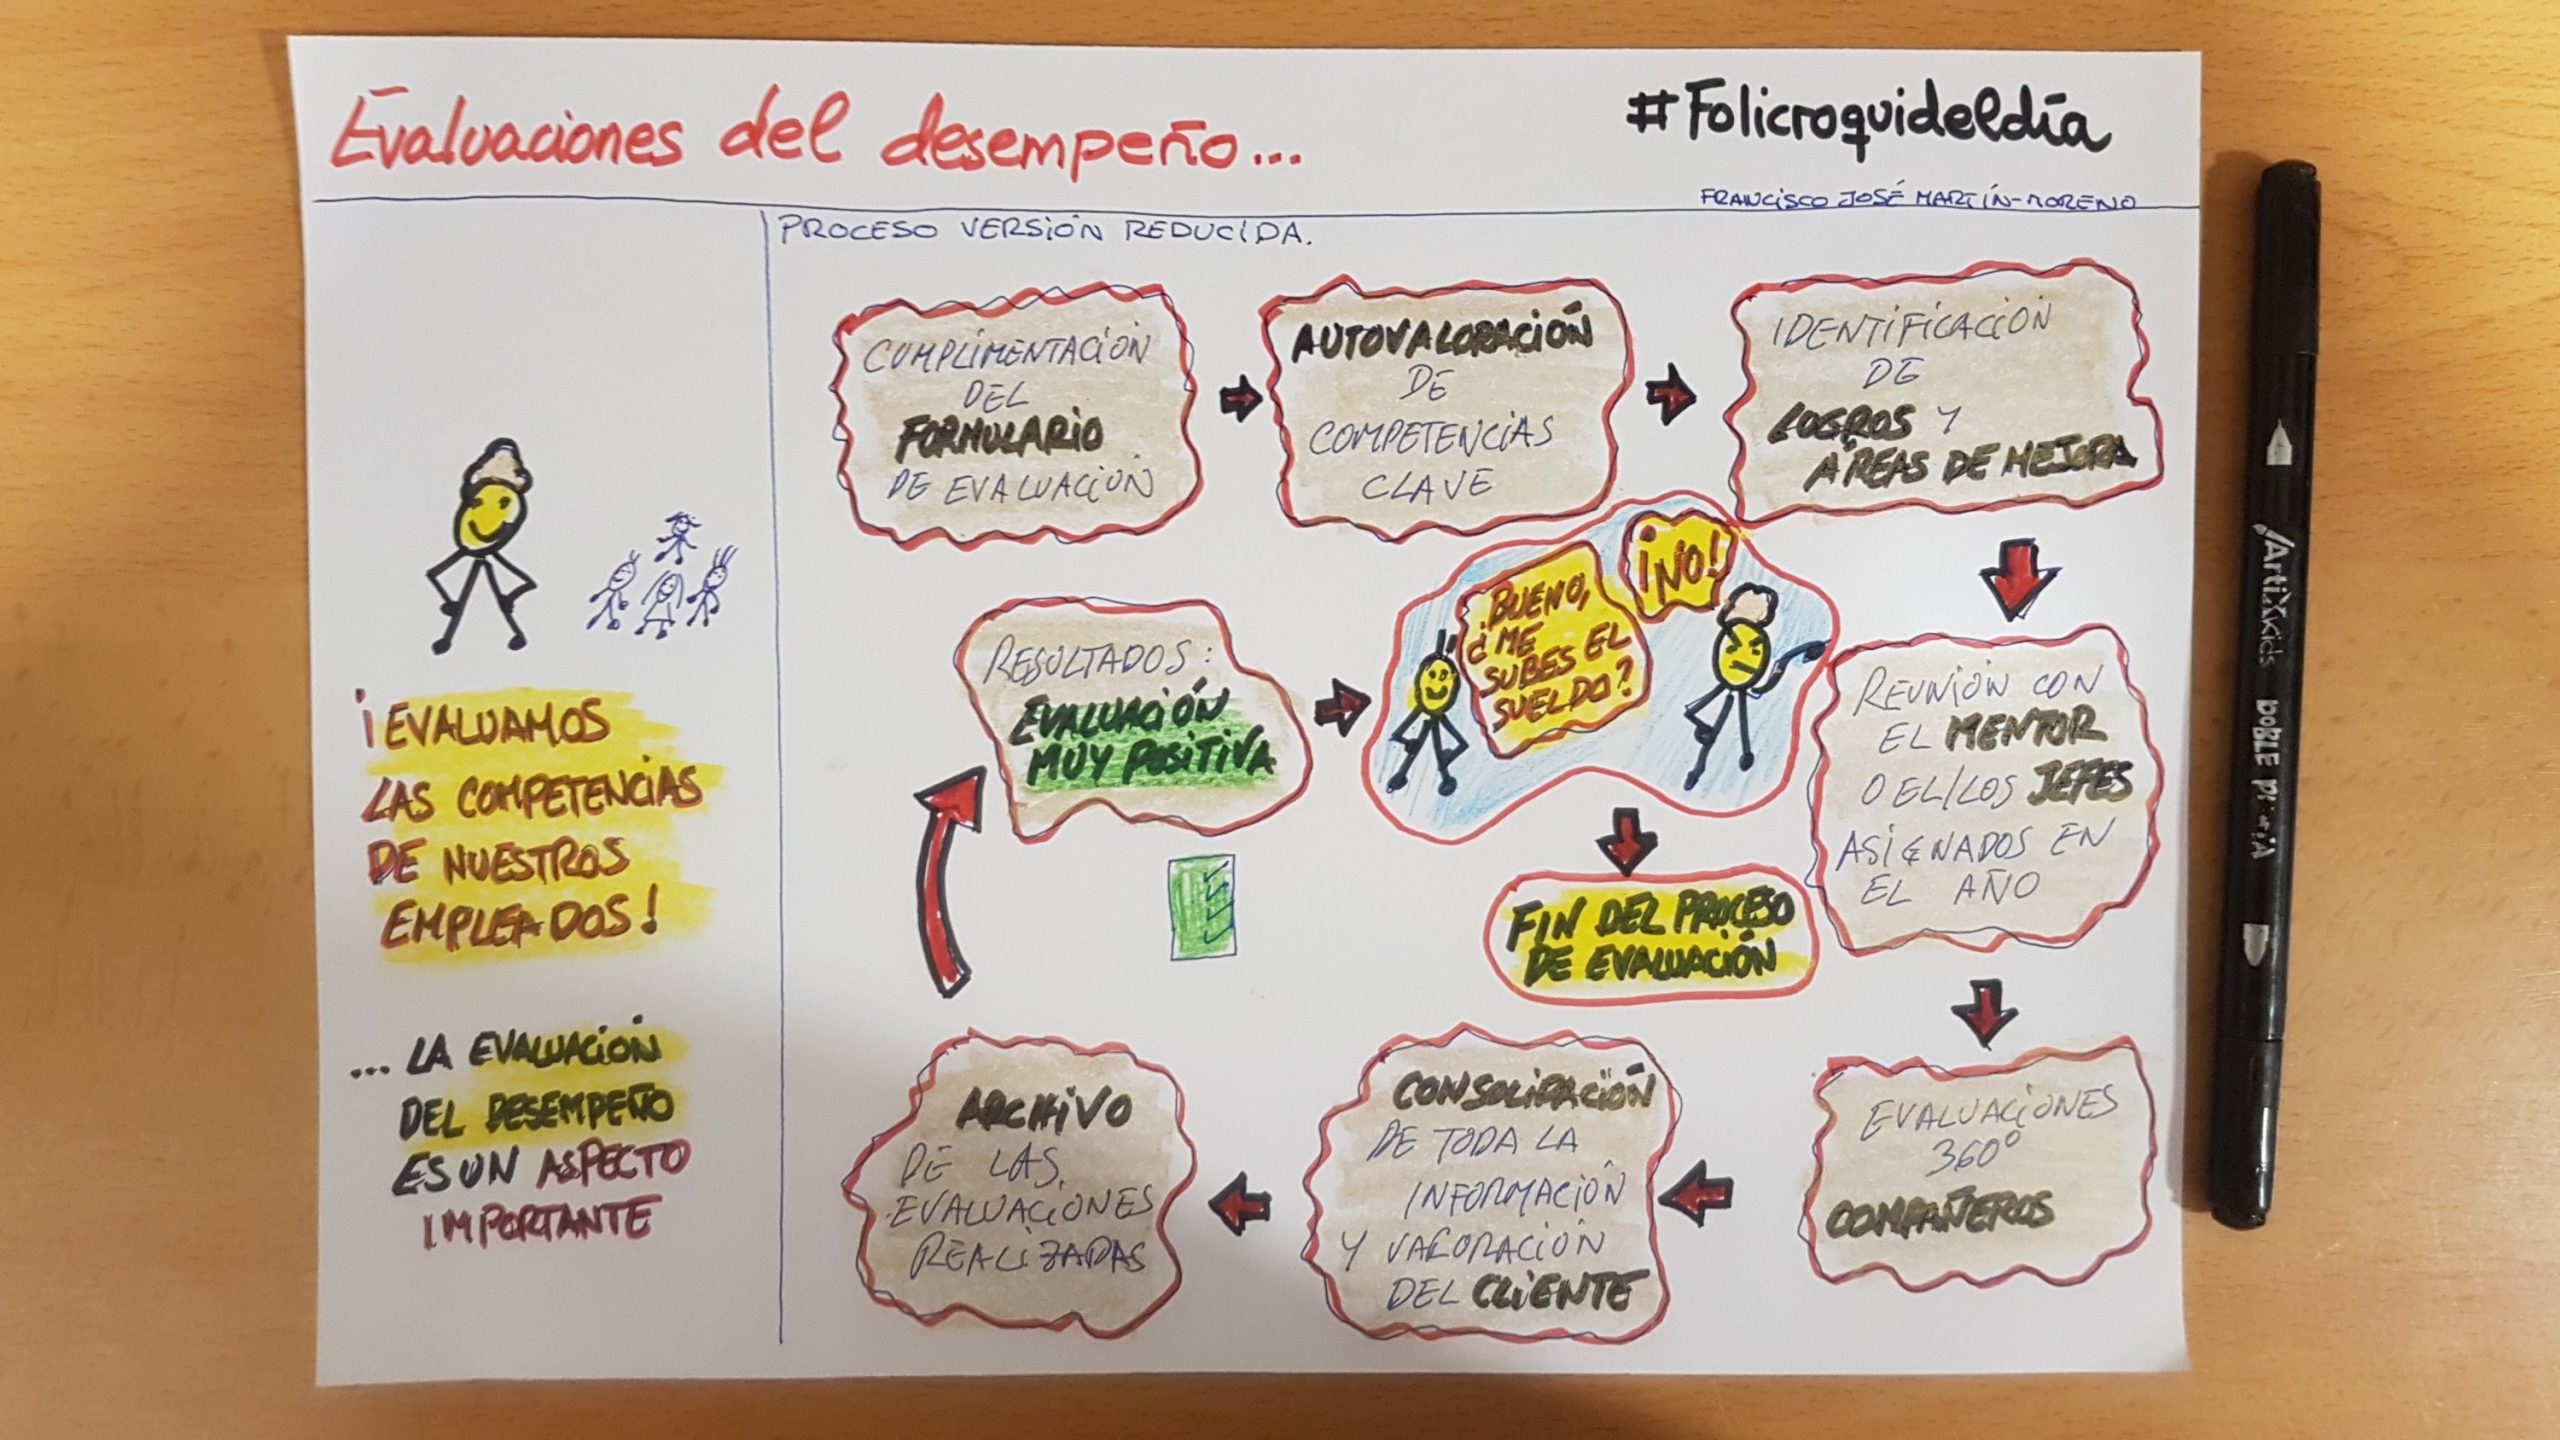 Evaluaciones del desempeño...
#Folicroquideldía
FRANCISCO JOSÉ MARTÍN-MORENO
PROCESO VERSIÓN REDUCIDA.
¡EVALUAMOS
LAS COMPETENCIAS
DE NUESTROS
EMPLEADOS!
... LA EVALUACIÓN
DEL DESEMPEÑO
ES UN ASPECTO
IMPORTANTE
CUMPLIMENTACIÓN
DEL
FORMULARIO
DE EVALUACIÓN
AUTOVALORACIÓN
DE
COMPETENCIAS
CLAVE
IDENTIFICACIÓN
DE
LOGROS Y
ÁREAS DE MEJORA
REUNIÓN CON
EL MENTOR
O EL/LOS JEFES
ASIGNADOS EN
EL AÑO
EVALUACIONES
360º
COMPAÑEROS
CONSOLIDACIÓN
DE TODA LA
INFORMACIÓN
Y VALORACIÓN
DEL CLIENTE
ARCHIVO
DE LAS
EVALUACIONES
REALIZADAS
RESULTADOS:
EVALUACIÓN
MUY POSITIVA
BUENO,
¿ME
SUBES EL
SUELDO?
¡NO!
FIN DEL PROCESO
DE EVALUACIÓN
ArtiXkids DOBLE PUNTA